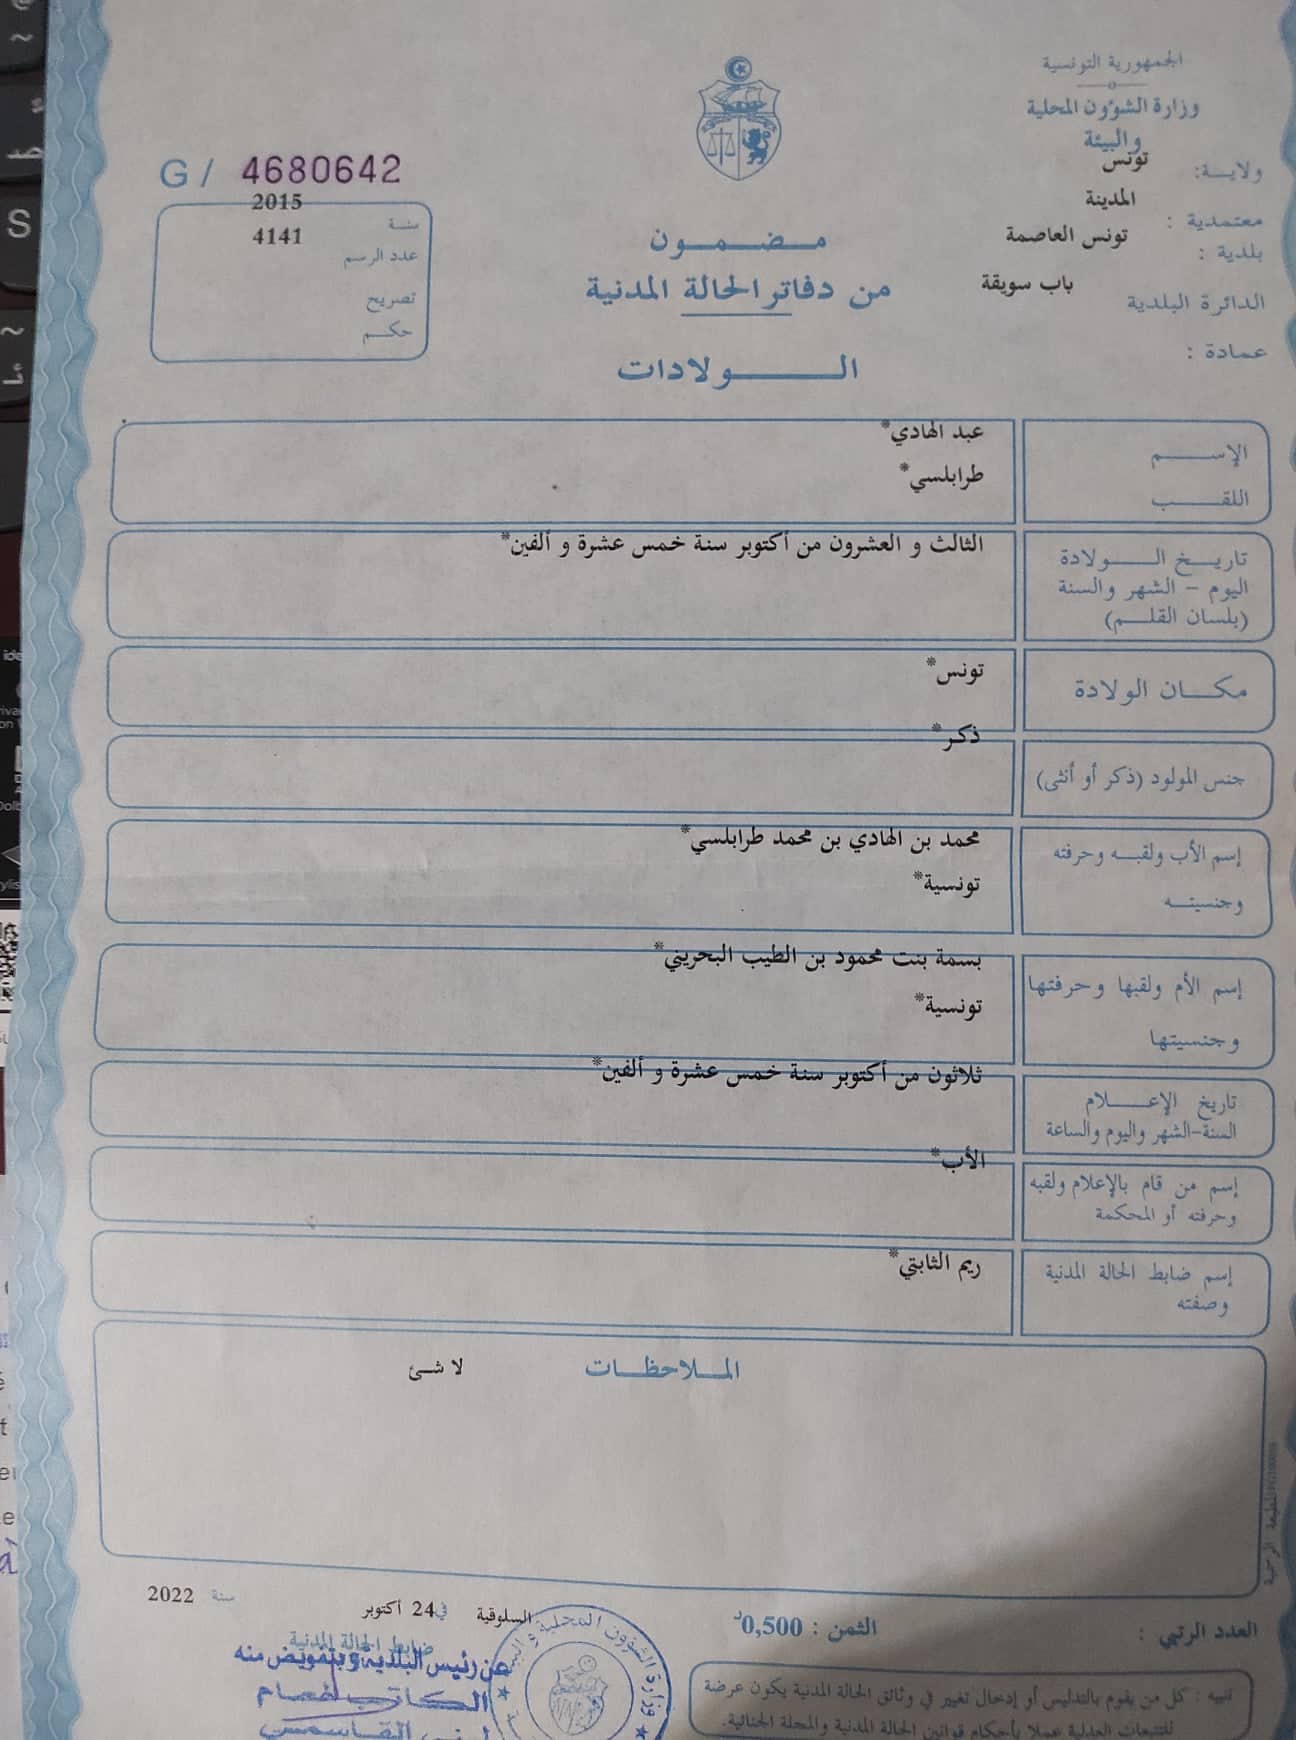 الجمهورية التونسية
وزارة الشؤون المحلية
والبيئة
ولاية: تونس
معتمدية : المدينة
بلدية : تونس العاصمة
الدائرة البلدية باب سويقة
عمادة :
G / 4680642
سنة 2015
عدد الرسم 4141
تصريح
حكم
مضمون
من دفاتر الحالة المدنية
الولادات
الإسم عبد الهادي*
اللقب طرابلسي*
تاريخ الولادة
اليوم - الشهر والسنة
(بلسان القلم)
الثالث و العشرون من أكتوبر سنة خمس عشرة و ألفين*
مكان الولادة تونس*
جنس المولود (ذكر أو أنثى) ذكر*
إسم الأب ولقبه وحرفته محمد بن الهادي بن محمد طرابلسي*
وجنسيته تونسية*
إسم الأم ولقبها وحرفتها بسمة بنت محمود بن الطيب البحريني*
وجنسيتها تونسية*
تاريخ الإعلام
السنة-الشهر واليوم والساعة
ثلاثون من أكتوبر سنة خمس عشرة و ألفين*
إسم من قام بالإعلام ولقبه
وحرفته أو المحكمة
الأب*
إسم ضابط الحالة المدنية
وصفته
ريم الثابتي*
الملاحظات
لا شئ
العدد الرتبي :
الثمن : 0,500د
السلوقية في 24 أكتوبر سنة 2022
ضابط الحالة المدنية
عن رئيس البلدية وبتفويض منه
الكاتب العام
وزارة الشؤون المحلية و البيئة
تنبيه : كل من يقوم بالتدليس أو إدخال تغيير في وثائق الحالة المدنية يكون عرضة
للتتبعات العدلية عملا بأحكام قوانين الحالة المدنية والمجلة الجنائية.